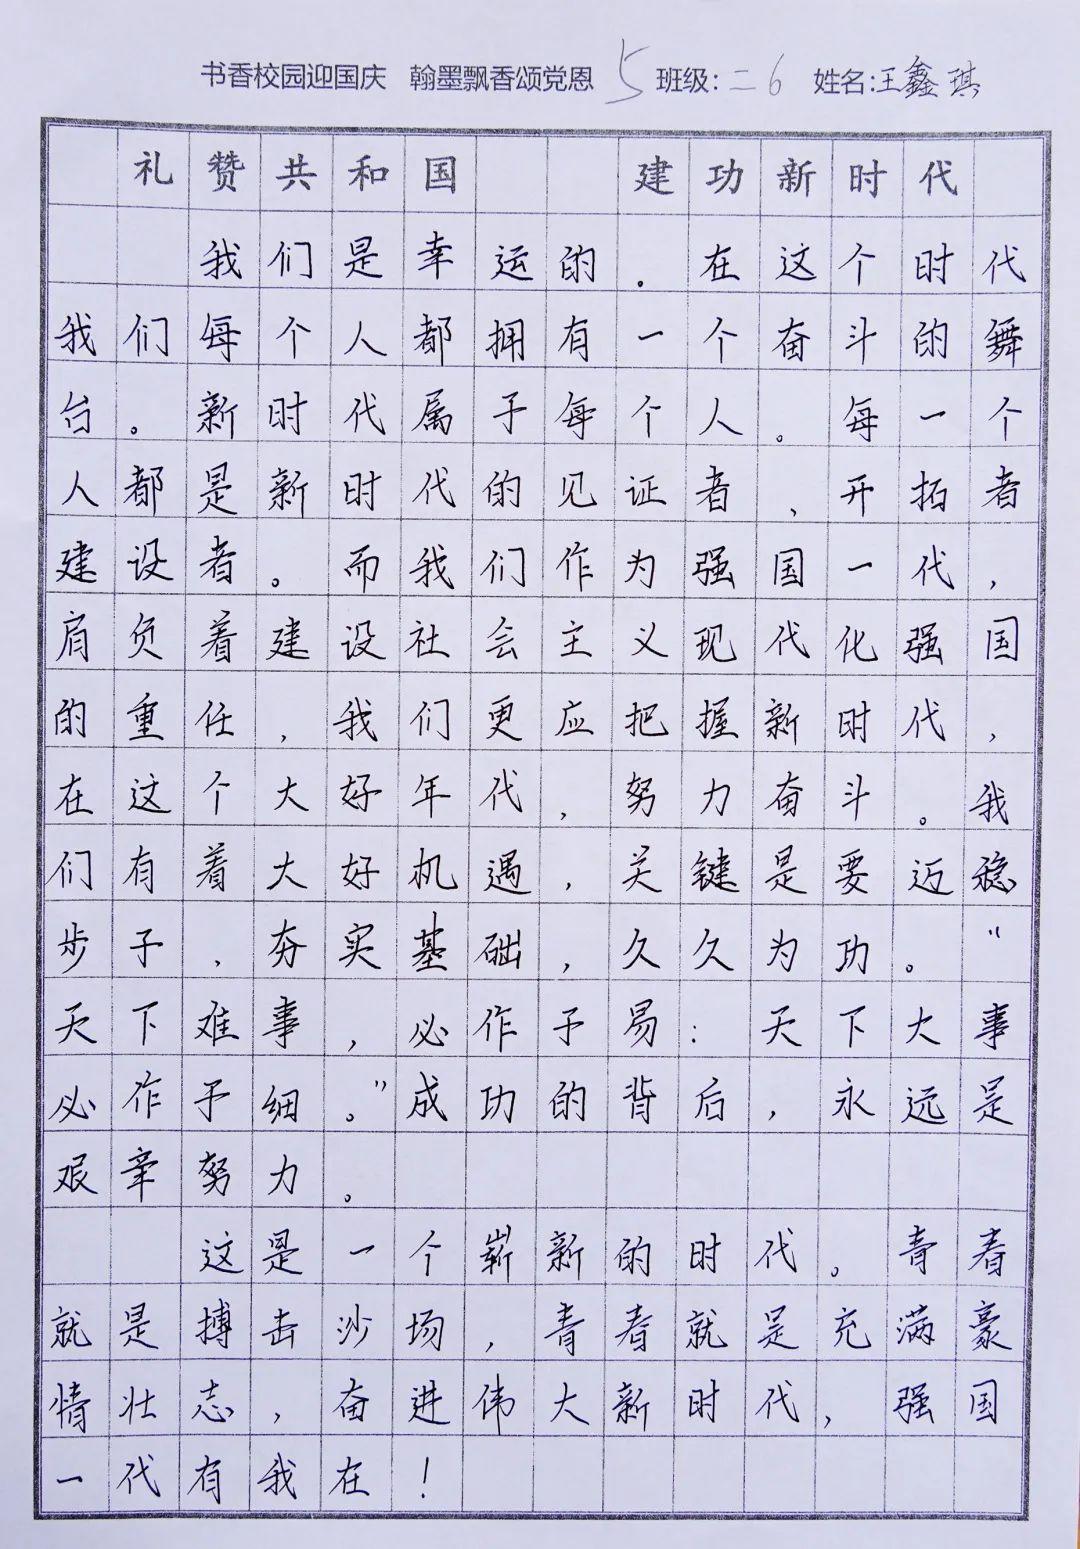 书香校园迎国庆 翰墨飘香颂党恩 5 班级:二6 姓名:王鑫琪
礼赞共和国 建功新时代
我们是幸运的。在这个时代
我们每个人都拥有一个奋斗的舞
台。新时代属于每个人。每一个
人都是新时代的见证者、开拓者
建设者。而我们作为强国一代，
肩负着建设社会主义现代化强国
的重任，我们更应把握新时代，
在这个大好年代，努力奋斗。我
们有着大好机遇，关键是要迈稳
步子，夯实基础，久久为功。“
天下难事，必作于易：天下大事
必作于细。”成功的背后，永远是
艰辛努力。
这是一个崭新的时代。青春
就是搏击沙场，青春就是充满豪
情壮志，奋进伟大新时代，强国
一代有我在！